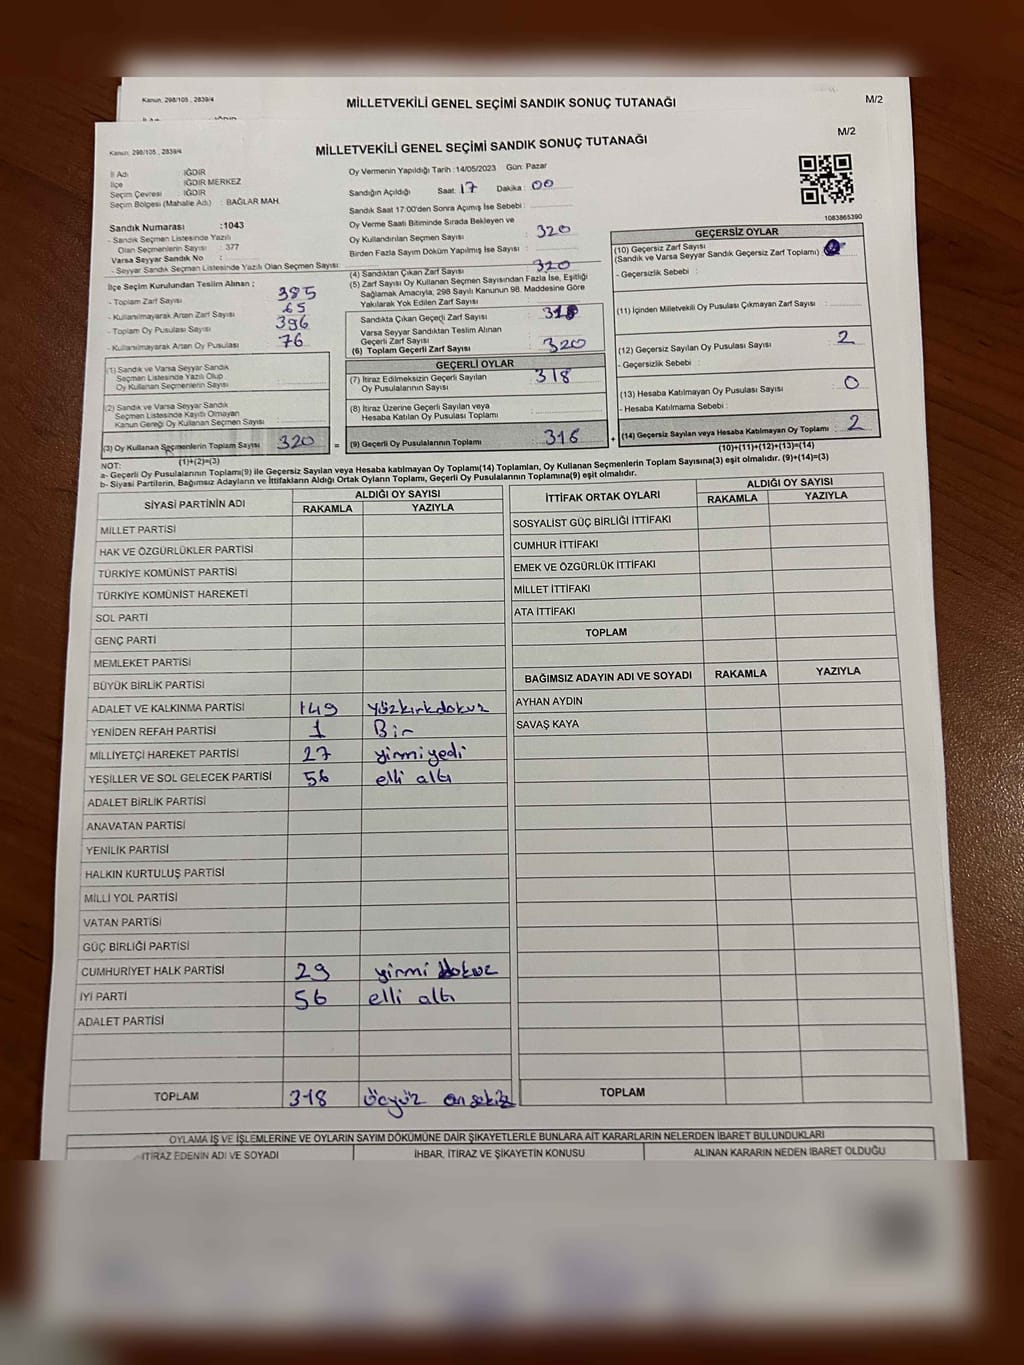 Kanun, 298/105 , 2839/4
MİLLETVEKİLİ GENEL SEÇİMİ SANDIK SONUÇ TUTANAĞI
M/2
M/2
Kanun, 298/105 , 2839/4
MİLLETVEKİLİ GENEL SEÇİMİ SANDIK SONUÇ TUTANAĞI
İl Adı : IĞDIR
İlçe : IĞDIR MERKEZ
Seçim Çevresi : IĞDIR
Seçim Bölgesi (Mahalle Adı) : BAĞLAR MAH.
Oy Vermenin Yapıldığı Tarih :14/05/2023 Gün: Pazar
Sandığın Açıldığı Saat: 17 Dakika : 00
Sandık Saat 17:00'den Sonra Açımış İse Sebebi :
Oy Verme Saati Bitiminde Sırada Bekleyen ve
Oy Kullandırılan Seçmen Sayısı 320
Birden Fazla Sayım Döküm Yapılmış İse Sayısı :
1083865390
Sandık Numarası :1043
- Sandık Seçmen Listesinde Yazılı
Olan Seçmenlerin Sayısı : 377
Varsa Seyyar Sandık No :
- Seyyar Sandık Seçmen Listesinde Yazılı Olan Seçmen Sayısı:
İlçe Seçim Kurulundan Teslim Alınan ;
- Toplam Zarf Sayısı 385
- Kullanılmayarak Artan Zarf Sayısı 65
- Toplam Oy Pusulası Sayısı 396
- Kullanılmayarak Artan Oy Pusulası 76
(1) Sandık ve Varsa Seyyar Sandık
Seçmen Listesinde Yazılı Olup
Oy Kullanan Seçmenlerin Sayısı :
(2) Sandık ve Varsa Seyyar Sandık
Seçmen Listesinde Kayıtlı Olmayan
Kanun Gereği Oy Kullanan Seçmen Sayısı :
(3) Oy Kullanan Seçmenlerin Toplam Sayısı 320 =
(1)+(2)=(3)
(4) Sandıktan Çıkan Zarf Sayısı 320
(5) Zarf Sayısı Oy Kullanan Seçmen Sayısından Fazla İse, Eşitliği
Sağlamak Amacıyla, 298 Sayılı Kanunun 98. Maddesine Göre
Yakılarak Yok Edilen Zarf Sayısı :
Sandıkta Çıkan Geçerli Zarf Sayısı 318
Varsa Seyyar Sandıktan Teslim Alınan
Geçerli Zarf Sayısı :
(6) Toplam Geçerli Zarf Sayısı 320
GEÇERLİ OYLAR
(7) İtiraz Edilmeksizin Geçerli Sayılan
Oy Pusulalarının Sayısı 318
(8) İtiraz Üzerine Geçerli Sayılan veya
Hesaba Katılan Oy Pusulası Toplamı :
(9) Geçerli Oy Pusulalarının Toplamı 316 +
GEÇERSİZ OYLAR
(10) Geçersiz Zarf Sayısı
(Sandık ve Varsa Seyyar Sandık Geçersiz Zarf Toplamı)
- Geçersizlik Sebebi :
(11) İçinden Milletvekili Oy Pusulası Çıkmayan Zarf Sayısı :
(12) Geçersiz Sayılan Oy Pusulası Sayısı 2
- Geçersizlik Sebebi :
(13) Hesaba Katılmayan Oy Pusulası Sayısı 0
- Hesaba Katılmama Sebebi :
(14) Geçersiz Sayılan veya Hesaba Katılmayan Oy Toplamı 2
(10)+(11)+(12)+(13)=(14)
NOT:
a- Geçerli Oy Pusulalarının Toplamı(9) ile Geçersiz Sayılan veya Hesaba katılmayan Oy Toplamı(14) Toplamları, Oy Kullanan Seçmenlerin Toplam Sayısına(3) eşit olmalıdır. (9)+(14)=(3)
b- Siyasi Partilerin, Bağımsız Adayların ve İttifakların Aldığı Ortak Oyların Toplamı, Geçerli Oy Pusulalarının Toplamına(9) eşit olmalıdır.
SİYASİ PARTİNİN ADI ALDIĞI OY SAYISI
RAKAMLA YAZIYLA
MİLLET PARTİSİ
HAK VE ÖZGÜRLÜKLER PARTİSİ
TÜRKİYE KOMÜNİST PARTİSİ
TÜRKİYE KOMÜNİST HAREKETİ
SOL PARTİ
GENÇ PARTİ
MEMLEKET PARTİSİ
BÜYÜK BİRLİK PARTİSİ
ADALET VE KALKINMA PARTİSİ 149 yüzkırkdokuz
YENİDEN REFAH PARTİSİ 1 Bir
MİLLİYETÇİ HAREKET PARTİSİ 27 yirmiyedi
YEŞİLLER VE SOL GELECEK PARTİSİ 56 elli altı
ADALET BİRLİK PARTİSİ
ANAVATAN PARTİSİ
YENİLİK PARTİSİ
HALKIN KURTULUŞ PARTİSİ
MİLLİ YOL PARTİSİ
VATAN PARTİSİ
GÜÇ BİRLİĞİ PARTİSİ
CUMHURİYET HALK PARTİSİ 29 yirmi dokuz
İYİ PARTİ 56 elli altı
ADALET PARTİSİ
TOPLAM 318 üçyüz onsekiz
İTTİFAK ORTAK OYLARI ALDIĞI OY SAYISI
RAKAMLA YAZIYLA
SOSYALİST GÜÇ BİRLİĞİ İTTİFAKI
CUMHUR İTTİFAKI
EMEK VE ÖZGÜRLÜK İTTİFAKI
MİLLET İTTİFAKI
ATA İTTİFAKI
TOPLAM
BAĞIMSIZ ADAYIN ADI VE SOYADI RAKAMLA YAZIYLA
AYHAN AYDIN
SAVAŞ KAYA
TOPLAM
OYLAMA İŞ VE İŞLEMLERİNE VE OYLARIN SAYIM DÖKÜMÜNE DAİR ŞİKAYETLERLE BUNLARA AİT KARARLARIN NELERDEN İBARET BULUNDUKLARI
İTİRAZ EDENİN ADI VE SOYADI İHBAR, İTİRAZ VE ŞİKAYETİN KONUSU ALINAN KARARIN NEDEN İBARET OLDUĞU